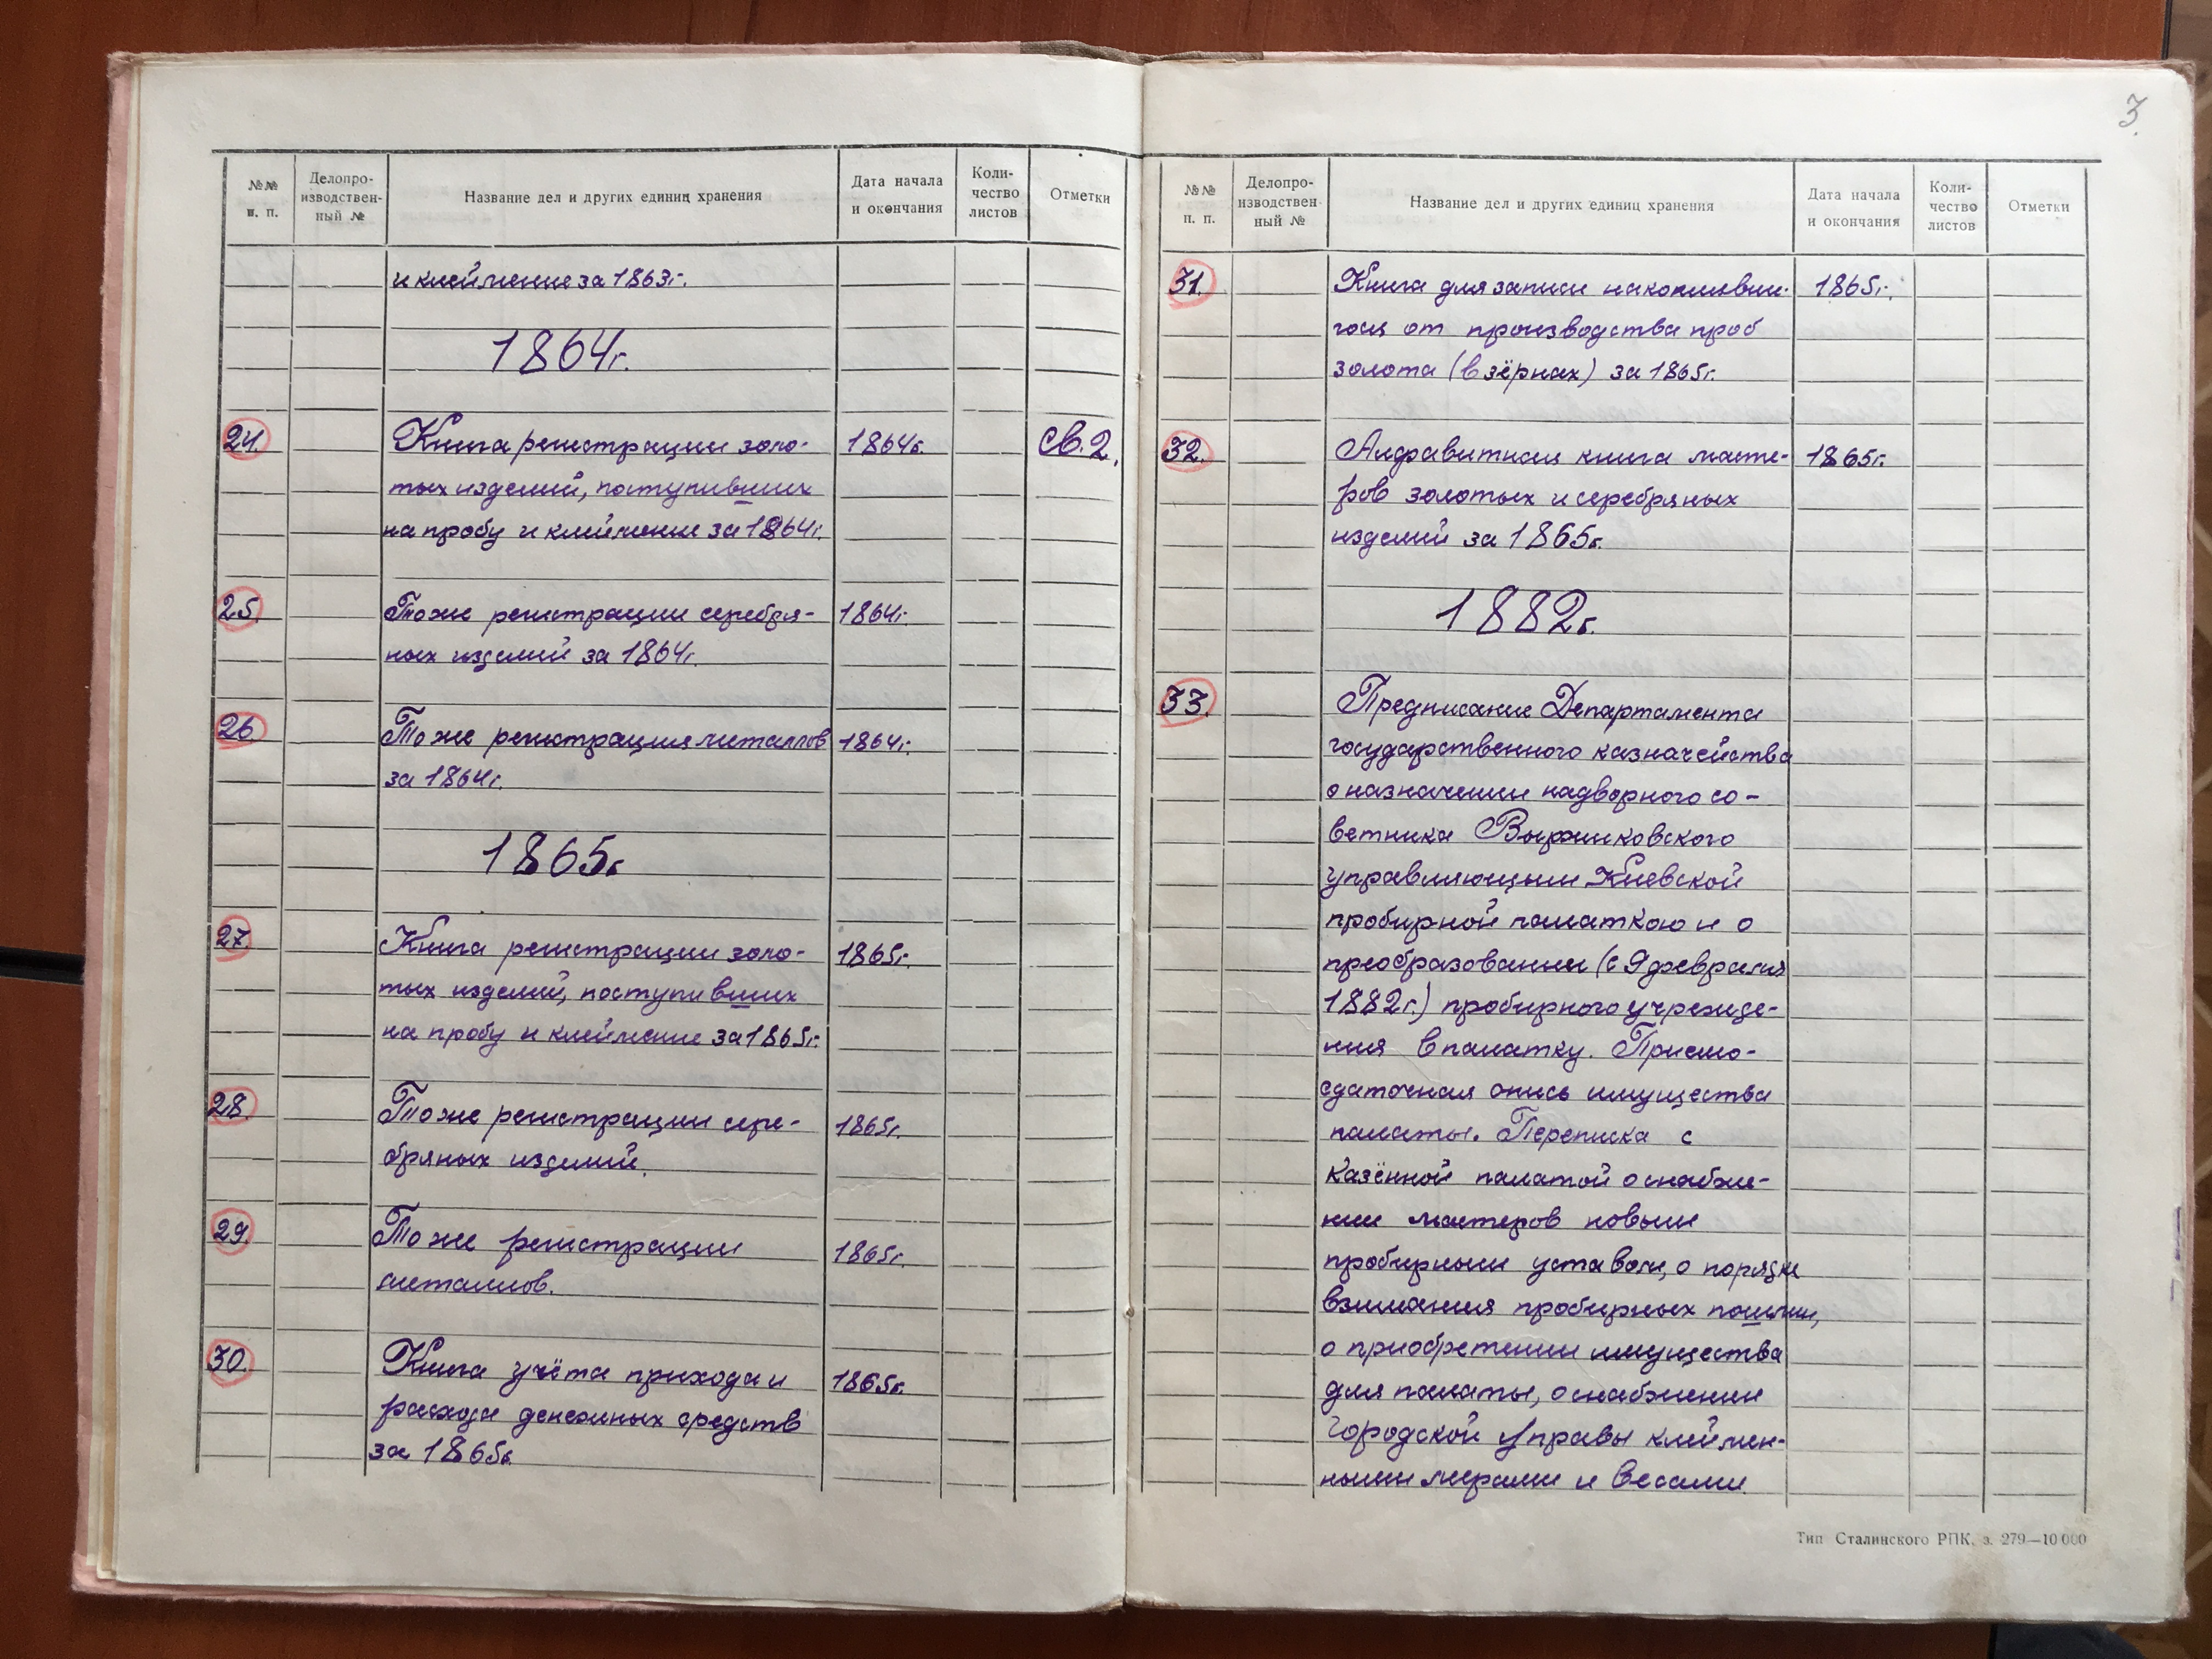 №№ п. п.
Делопро-
изводствен-
ный №
Название дел и других единиц хранения
Дата начала
и окончания
Коли-
чество
листов
Отметки
и клеймение за 1863г.
1864г.
24. Книга регистрации золо- 1864г. св. 2.
тых изделий, поступивших
на пробу и клеймение за 1864г.
25. То же регистрации серебря- 1864г.
ных изделий за 1864г.
26. То же регистрация металлов 1864г.
за 1864г.
1865г
27. Книга регистрации золо- 1865г.
тых изделий, поступивших
на пробу и клеймение за 1865г.
28. То же регистрации сере- 1865г.
бряных изделий.
29. То же регистрации 1865г.
металлов.
30. Книга учёта прихода и 1865г.
расхода денежных средств
за 1865г.
3.
№№
п. п.
Делопро-
изводствен
ный №
Название дел и других единиц хранения
Дата начала
и окончания
Коли-
чество
листов
Отметки
31. Книга для записи накопивше- 1865г.
гося от производства проб
золота (в зёрнах) за 1865г.
32. Алфавитная книга масте- 1865г.
ров золотых и серебряных
изделий за 1865г.
1882г.
33. Предписание Департамента
государственного казначейства
о назначении надворного со-
ветника
управляющим Киевской
пробирной палаткою и о
преобразовании (с 9 февраля
1882г.) пробирного учрежде-
ния в палатку. Приемо-
сдаточная опись имущества
палаты. Переписка с
Казённой палатой о снабже-
нии мастеров новым
пробирным уставом, о порядке
взимания пробирных пошлин,
о приобретении имущества
для палаты, о снабжении
Городской Управы клеймен-
ными мерами и весами
Тип Сталинского РПК, з. 279—10 000